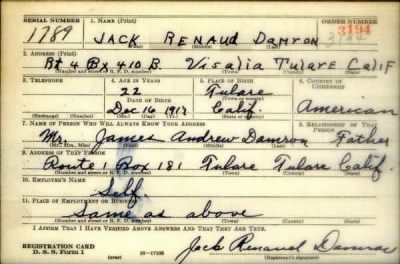 SERIAL NUMBER 1. NAME (Print) ORDER NUMBER
1789 JACK RENAUD DAMRON 3194
(First) (Middle) (Last)
2. ADDRESS (Print)
Rt 4 Bx 410 B. Visalia Tulare Calif
(Number and street or R. F. D. number) (Town) (County) (State)
3. TELEPHONE 4. AGE IN YEARS 5. PLACE OF BIRTH 6. COUNTRY OF CITIZENSHIP
22 Tulare
DATE OF BIRTH (Town or county)
Dec 16 1917 Calif. American
(Exchange) (Number) (Mo.) (Day) (Yr.) (State or country)
7. NAME OF PERSON WHO WILL ALWAYS KNOW YOUR ADDRESS 8. RELATIONSHIP OF THAT PERSON
Mr. James Andrew Damron Father
(Mr., Mrs., Miss) (First) (Middle) (Last)
9. ADDRESS OF THAT PERSON
Route 1 Box 181 Tulare Tulare Calif.
(Number and street or R. F. D. number) (Town) (County) (State)
10. EMPLOYER'S NAME
Self
11. PLACE OF EMPLOYMENT OR BUSINESS
Same as above
(Number and street or R. F. D. number) (Town) (County) (State)
I AFFIRM THAT I HAVE VERIFIED ABOVE ANSWERS AND THAT THEY ARE TRUE.
REGISTRATION CARD
D. S. S. Form 1 16—17105 Jack Renaud Damron